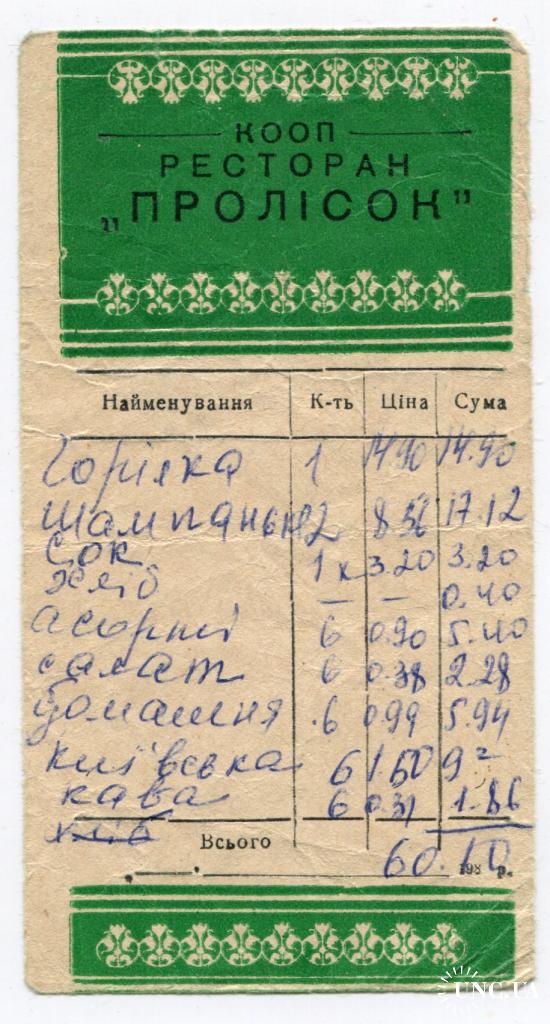 КООП
РЕСТОРАН
„ПРОЛІСОК"
Найменування К-ть Ціна Сума
Горілка 1 14.90 14.90
Шампанське 2 8.56 17.12
Сок 1 к 3.20 3.20
Хліб — — 0.40
Асорті 6 0.90 5.40
салат 6 0.38 2.28
домашня 6 0.99 5.94
Київська 6 1.50 9=
кава 6 0.31 1.86
хліб
Всього
60.10
198 р.
UNC.UA